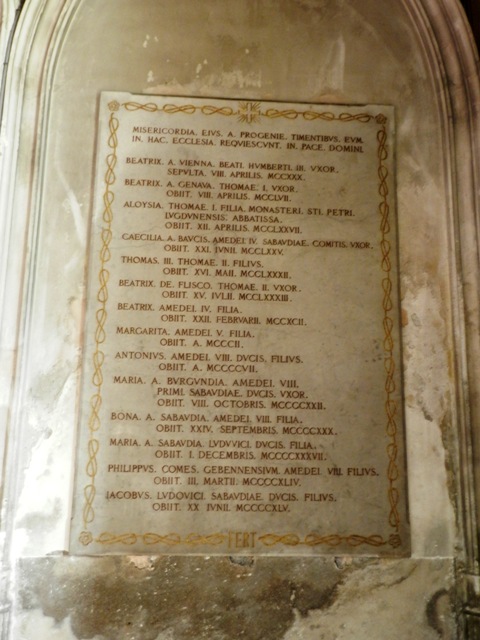 MISERICORDIA. EIVS. A. PROGENIE. TIMENTIBVS. EVM.
IN. HAC. ECCLESIA. REQVIESCVNT. IN. PACE. DOMINI.
BEATRIX. A. VIENNA. BEATI. HVMBERTI. III. VXOR.
SEPVLTA. VIII. APRILIS. MCCXXX.
BEATRIX. A. GENAVA. THOMAE. I. VXOR.
OBIIT. VIII. APRILIS. MCCLVII.
ALOYSIA. THOMAE. I. FILIA. MONASTERI. STI. PETRI.
LVGDVNENSIS. ABBATISSA.
OBIIT. XII. APRILIS. MCCLXXVII.
CAECILIA. A. BAVCIS. AMEDEI. IV. SABAVDIAE. COMITIS. VXOR.
OBIIT. XXI. IVNII. MCCLXXV.
THOMAS. III. THOMAE. II. FILIVS.
OBIIT. XVI. MAII. MCCLXXXII.
BEATRIX. DE. FLISCO. THOMAE. II. VXOR.
OBIIT. XV. IVLII. MCCLXXXIII.
BEATRIX. AMEDEI. IV. FILIA.
OBIIT. XXII. FEBRVARII. MCCXCII.
MARGARITA. AMEDEI. V. FILIA.
OBIIT. A. MCCCII.
ANTONIVS. AMEDEI. VIII. DVCIS. FILIVS.
OBIIT. A. MCCCCVII.
MARIA. A. BVRGVNDIA. AMEDEI. VIII.
PRIMI. SABAVDIAE. DVCIS. VXOR.
OBIIT. VIII. OCTOBRIS. MCCCCXXII.
BONA. A. SABAVDIA. AMEDEI. VIII. FILIA.
OBIIT. XXIV. SEPTEMBRIS. MCCCCXXX.
MARIA. A. SABAVDIA. LVDVVICI. DVCIS. FILIA.
OBIIT. I. DECEMBRIS. MCCCCXXXVII.
PHILIPPVS. COMES. GEBENNENSIVM. AMEDEI. VIII. FILIVS.
OBIIT. III. MARTII. MCCCCXLIV.
IACOBVS. LVDOVICI. SABAVDIAE. DVCIS. FILIVS.
OBIIT. XX. IVNII. MCCCCXLV.
FERT